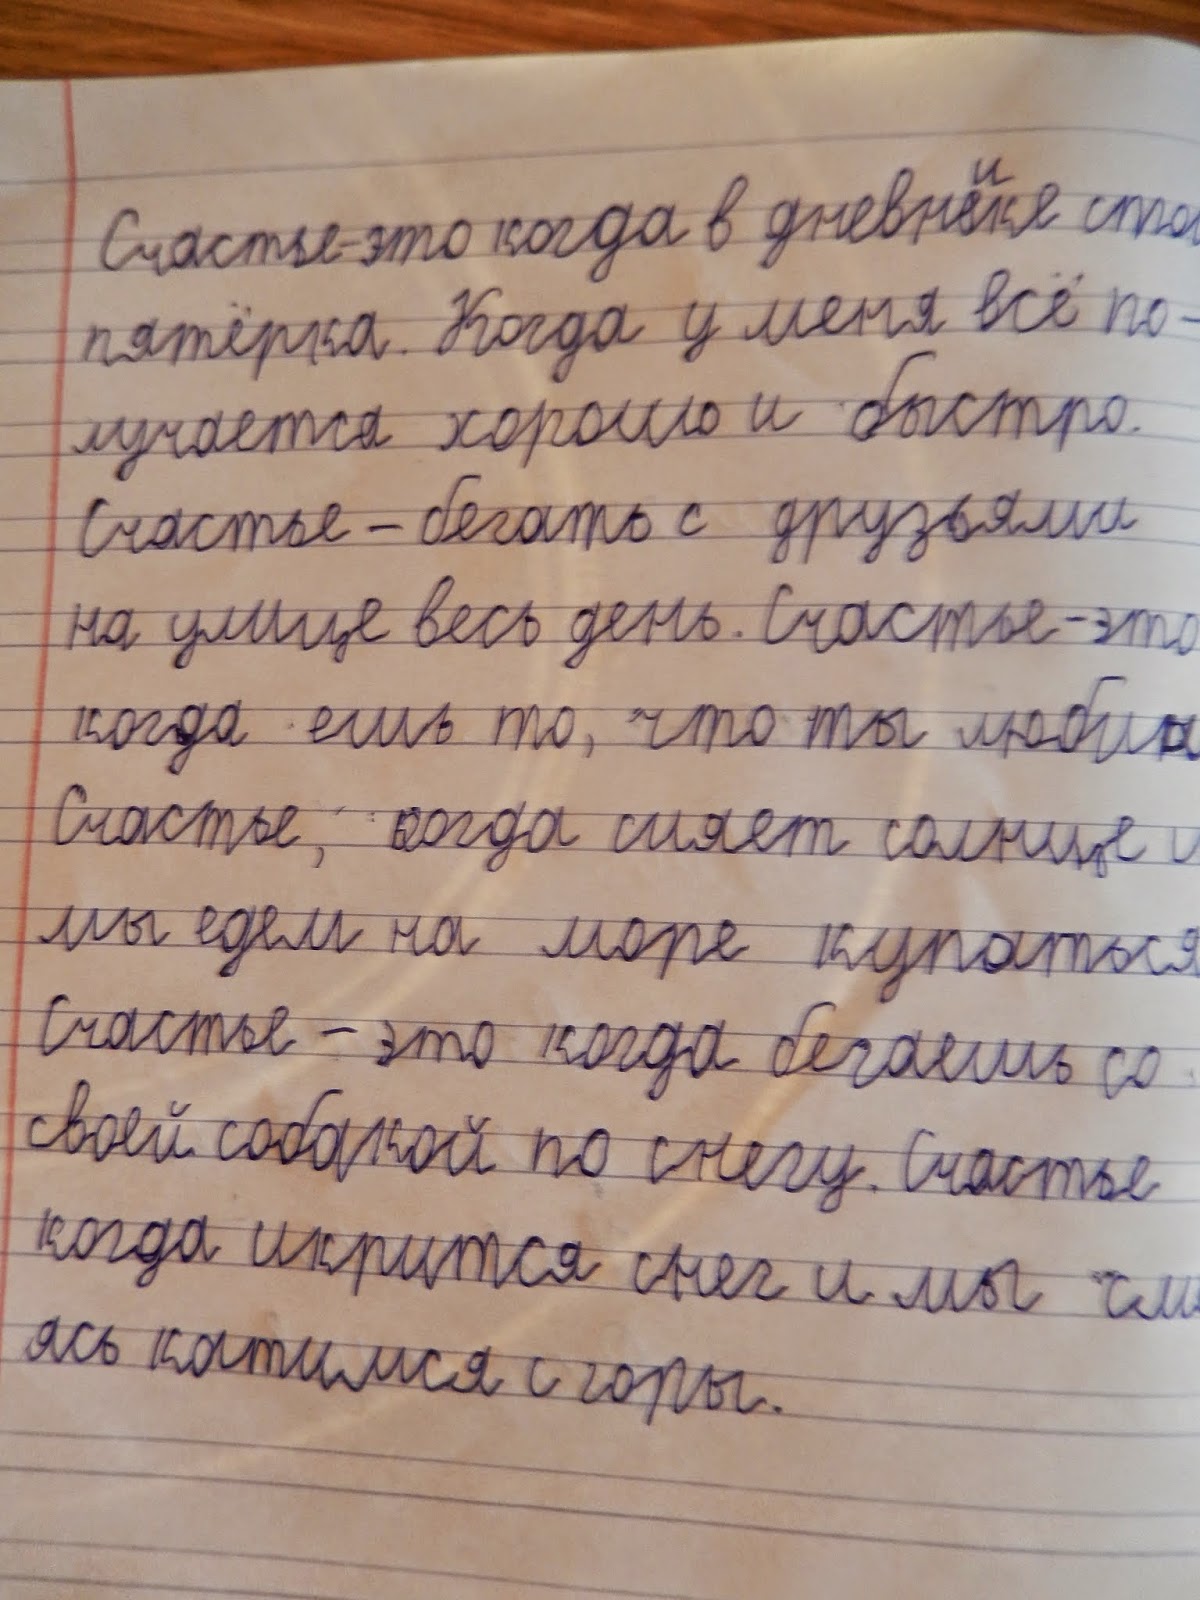 Счастье-это когда в дневнике сто
пятёрка. Когда у меня всё по-
лучается хорошо и быстро.
Счастье – бегать с друзьями
на улице весь день. Счастье-это
когда ешь то, что ты люби
Счастье, когда сияет солнце и
мы едем на море купаться
Счастье – это когда бегаешь со
своей собакой по снегу. Счастье
когда икрится снег и мы
ясь катимся с горы.